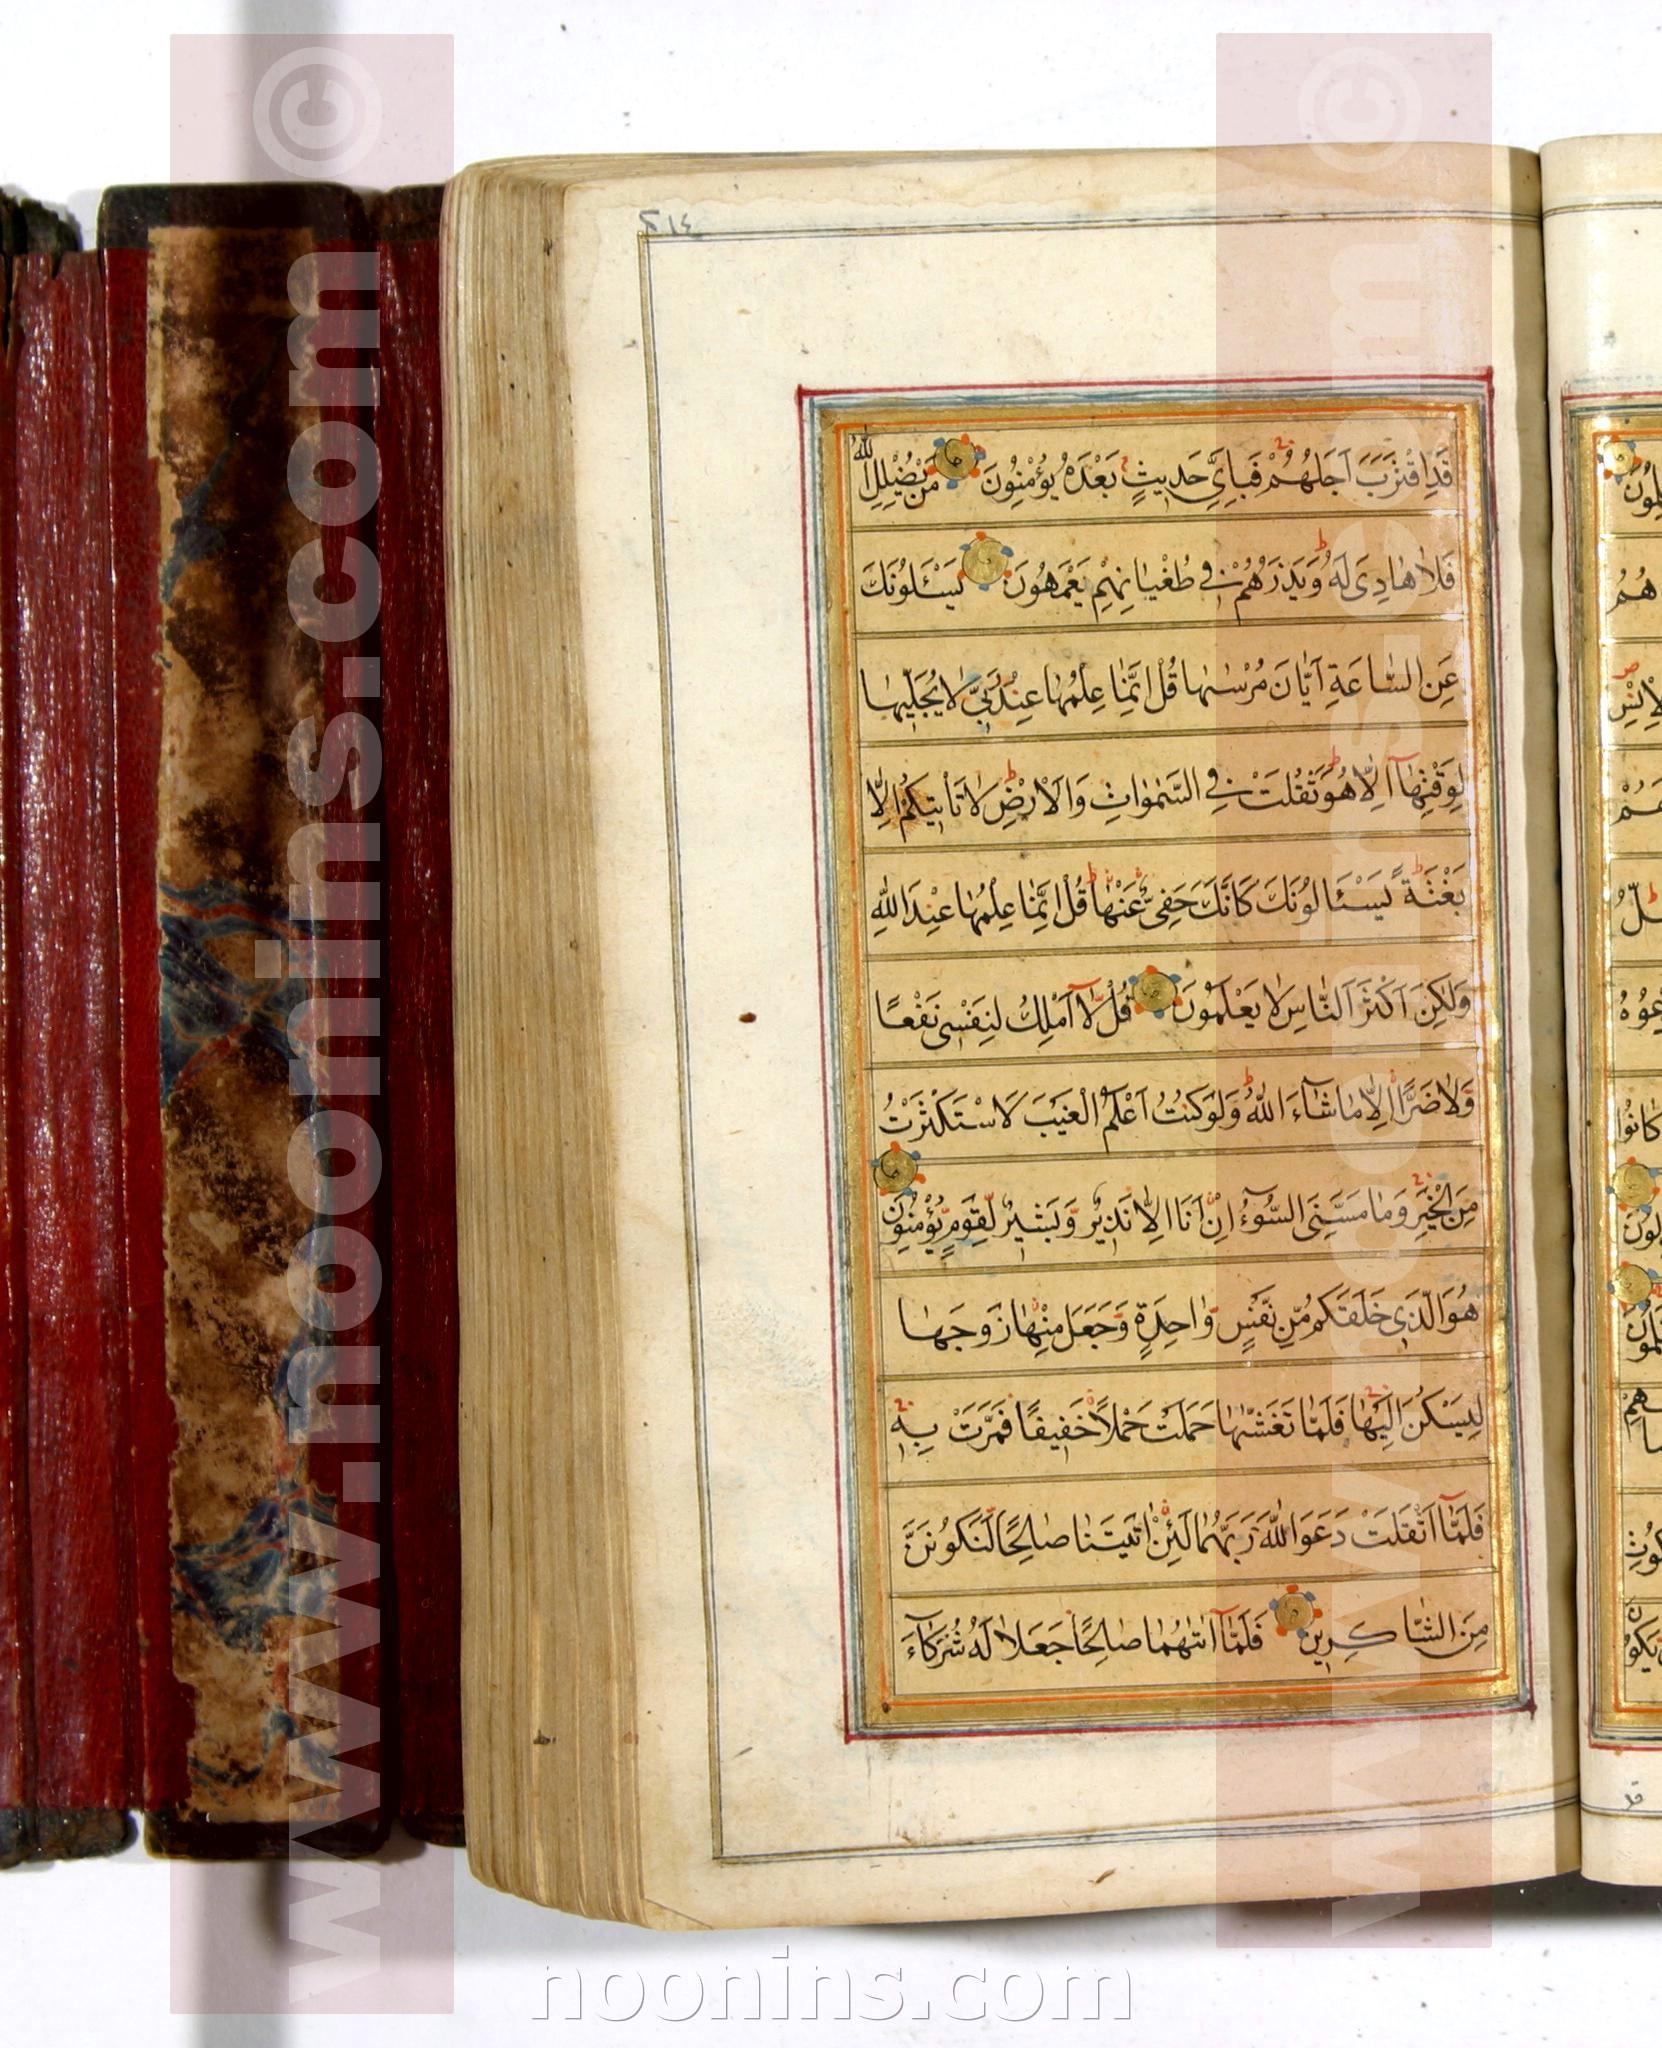 ٢١٤
قَدِ اقْتَرَبَ اَجَلُهُمْ فَبِاَيِّ حَدِيثٍ بَعْدَهُ يُؤْمِنُونَ مَنْ يُضْلِلِ اللّٰهُ
فَلَا هَادِىَ لَهُ وَيَذَرُهُمْ فِي طُغْيَانِهِمْ يَعْمَهُونَ يَسْـَٔلُونَكَ
عَنِ السَّاعَةِ اَيَّانَ مُرْسٰىهَا قُلْ اِنَّمَا عِلْمُهَا عِنْدَ رَبِّي لَا يُجَلِّيهَا
لِوَقْتِهَآ اِلَّا هُوَ ثَقُلَتْ فِي السَّمٰوَاتِ وَالْاَرْضِ لَا تَأْتِيكُمْ اِلَّا
بَغْتَةً يَسْـَٔالُونَكَ كَاَنَّكَ حَفِيٌّ عَنْهَا قُلْ اِنَّمَا عِلْمُهَا عِنْدَ اللّٰهِ
وَلٰكِنَّ اَكْثَرَ النَّاسِ لَا يَعْلَمُونَ قُلْ لَّآ اَمْلِكُ لِنَفْسِي نَفْعًا
وَّلَا ضَرًّا اِلَّا مَا شَآءَ اللّٰهُ وَلَوْ كُنْتُ اَعْلَمُ الْغَيْبَ لَاسْتَكْثَرْتُ
مِنَ الْخَيْرِ وَمَا مَسَّنِيَ السُّوٓءُ اِنْ اَنَا اِلَّا نَذِيرٌ وَّبَشِيرٌ لِّقَوْمٍ يُّؤْمِنُونَ
هُوَ الَّذِي خَلَقَكُمْ مِّنْ نَّفْسٍ وَّاحِدَةٍ وَّجَعَلَ مِنْهَا زَوْجَهَا
لِيَسْكُنَ اِلَيْهَا فَلَمَّا تَغَشّٰىهَا حَمَلَتْ حَمْلًا خَفِيفًا فَمَرَّتْ بِهِ
فَلَمَّآ اَثْقَلَتْ دَعَوَا اللّٰهَ رَبَّهُمَا لَئِنْ اٰتَيْتَنَا صَالِحًا لَّنَكُونَنَّ
مِنَ الشَّاكِرِينَ فَلَمَّآ اٰتٰىهُمَا صَالِحًا جَعَلَا لَهُ شُرَكَآءَ
www.noonins.com ©
www.noonins.com ©
noonins.com